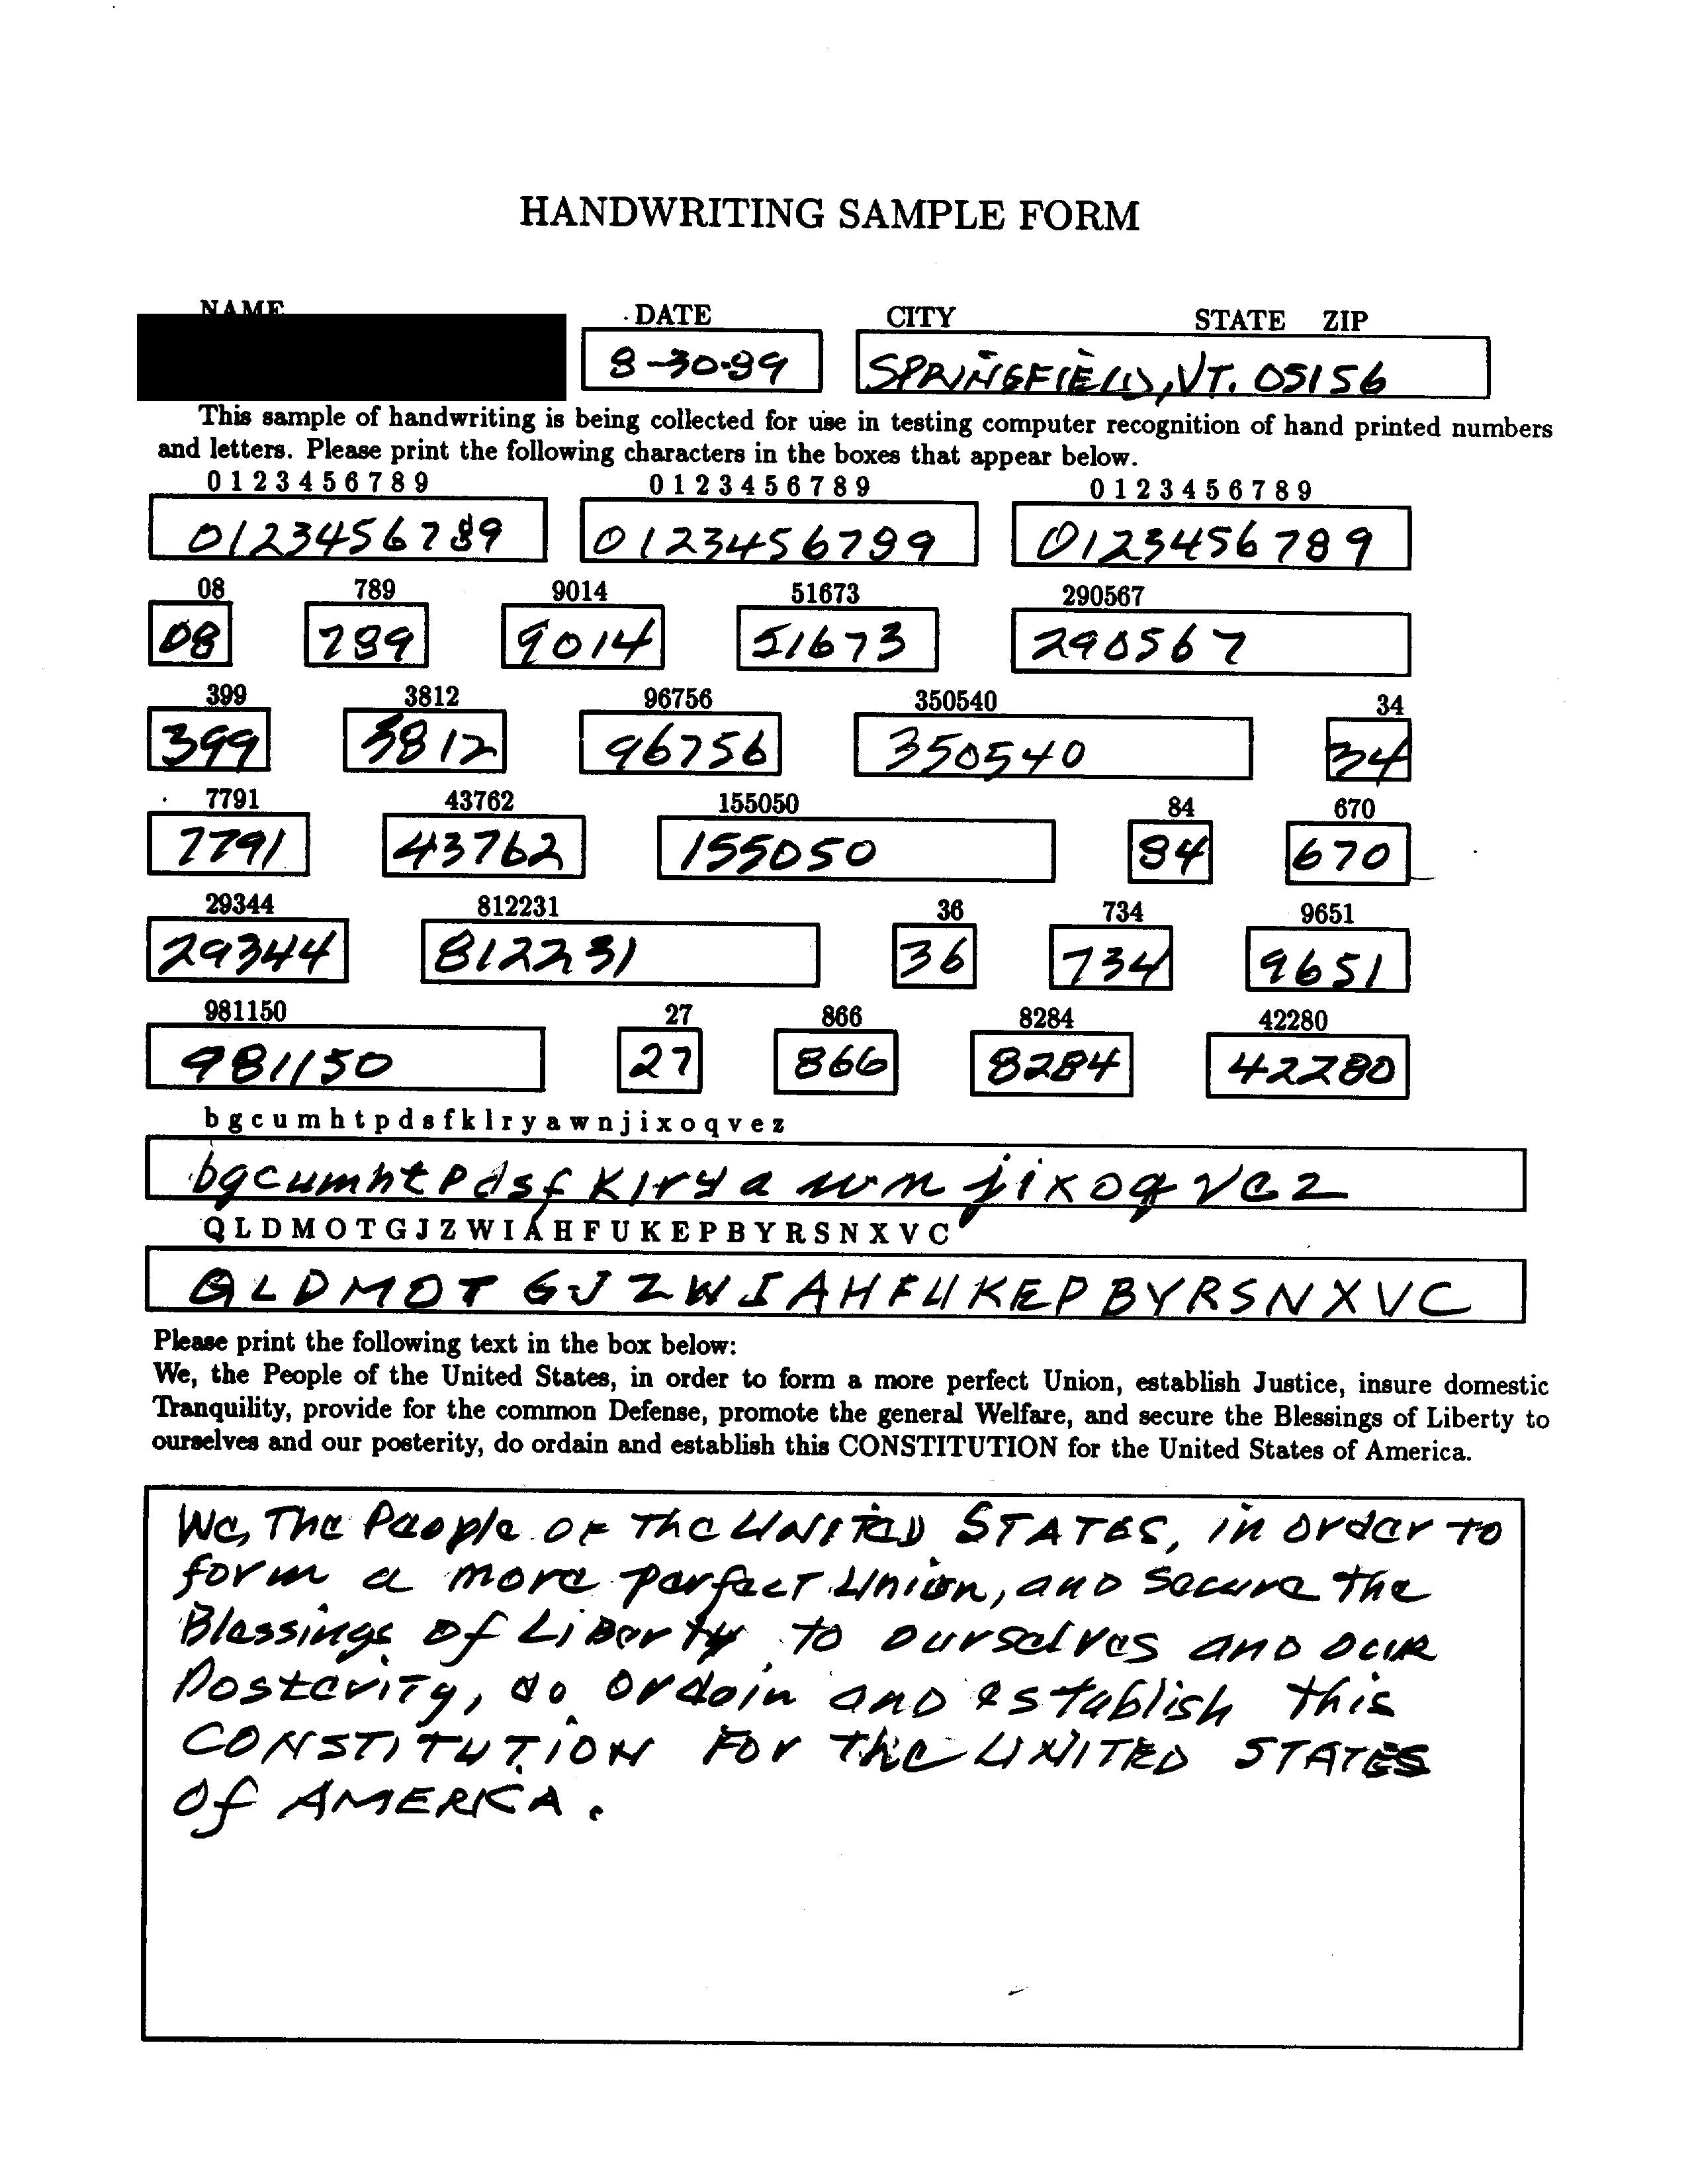 HANDWRITING SAMPLE FORM
NAME DATE CITY STATE ZIP
8-30-89 SPRINGFIELD, VT. 05156
This sample of handwriting is being collected for use in testing computer recognition of hand printed numbers
and letters. Please print the following characters in the boxes that appear below.
0 1 2 3 4 5 6 7 8 9 0 1 2 3 4 5 6 7 8 9 0 1 2 3 4 5 6 7 8 9
0123456789 0123456789 0123456789
08 789 9014 51673 290567
08 789 9014 51673 290567
399 3812 96756 350540 34
399 3812 96756 350540 34
7791 43762 155050 84 670
7791 43762 155050 84 670
29344 812231 36 734 9651
29344 812231 36 734 9651
981150 27 866 8284 42280
981150 27 866 8284 42280
b g c u m h t p d s f k l r y a w n j i x o q v e z
bgcumhtpdsfklrya wn jixoqvez
Q L D M O T G J Z W I A H F U K E P B Y R S N X V C
QLDMOT GJZWIAHFUKEPBYRSNXVC
Please print the following text in the box below:
We, the People of the United States, in order to form a more perfect Union, establish Justice, insure domestic
Tranquility, provide for the common Defense, promote the general Welfare, and secure the Blessings of Liberty to
ourselves and our posterity, do ordain and establish this CONSTITUTION for the United States of America.
We, The People OF The UNITED STATES, in order to
form a more perfecT Union, anD secure the
Blessings Of LiBerty to ourselves anD OuR
PosteriTy, do ordain anD establish this
CONSTITUTION FOr the UNITED STATES
Of AMERICA.